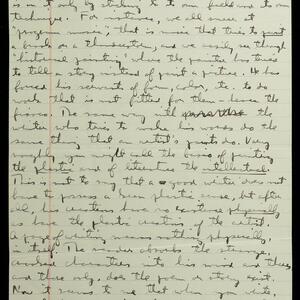 is in it only by sticking to its own field and its own
technique. For instance, we all sneer at
"program music", that is music that tries to paint
a brook or a thunderstorm, and we easily see through
"historical painting" where the painter has tries
to tell a story instead of paint a picture. He has
forced his servants of form, color, etc. to do
work that is not fitted for them - hence the
fiasco. The same way with
writer who tries to make his words do the
same thing that an artist's paints do. Very
roughly you might call the basis of painting
the plastic and of literature the intellectual.
This is not to say that a good writer does not
have to possess a keen plastic sense, but after
all, his creations have no existence physically
as have the plastic creations of the artist.
of writing means nothing physically,
in itself. The reader absorbs the strange,
characters into his mind and there,
and there only, does the poem or story exist.
Now it seems to me that when you write,